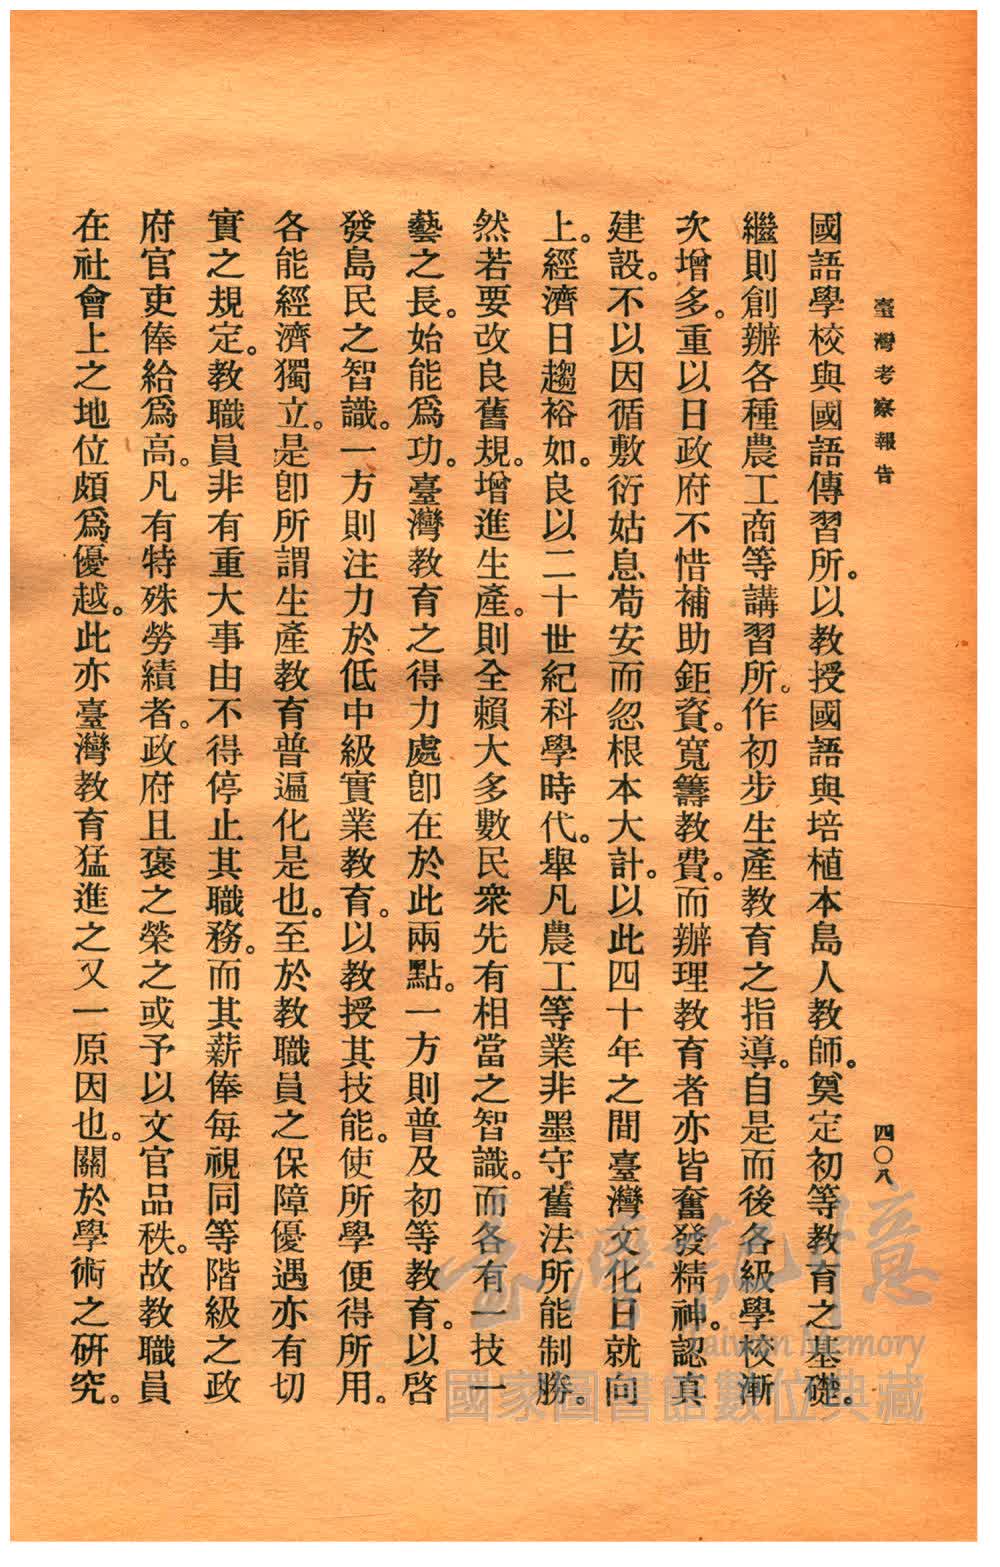 臺灣考察報告
四〇八
國語學校與國語傳習所。以教授國語與培植本島人教師。奠定初等教育之基礎。
繼則創辦各種農工商等講習所。作初步生產教育之指導。自是而後各級學校漸
次增多。重以日政府不惜補助鉅資。寬籌教費。而辦理教育者亦皆奮發精神。認真
建設。不以因循敷衍姑息苟安而忽根本大計。以此四十年之間臺灣文化日就向
上。經濟日趨裕如。良以二十世紀科學時代。舉凡農工等業非墨守舊法所能制勝。
然若要改良舊規。增進生產。則全賴大多數民衆先有相當之智識。而各有一技一
藝之長。始能爲功。臺灣教育之得力處卽在於此兩點。一方則普及初等教育。以啓
發島民之智識。一方則注力於低中級實業教育。以教授其技能。使所學便得所用。
各能經濟獨立。是卽所謂生產教育普遍化是也。至於教職員之保障優遇亦有切
實之規定。教職員非有重大事由不得停止其職務。而其薪俸每視同等階級之政
府官吏俸給爲高。凡有特殊勞績者。政府且褒之榮之或予以文官品秩。故教職員
在社會上之地位頗爲優越。此亦臺灣教育猛進之又一原因也。關於學術之研究。
臺灣記憶
Taiwan Memory
國家圖書館數位典藏